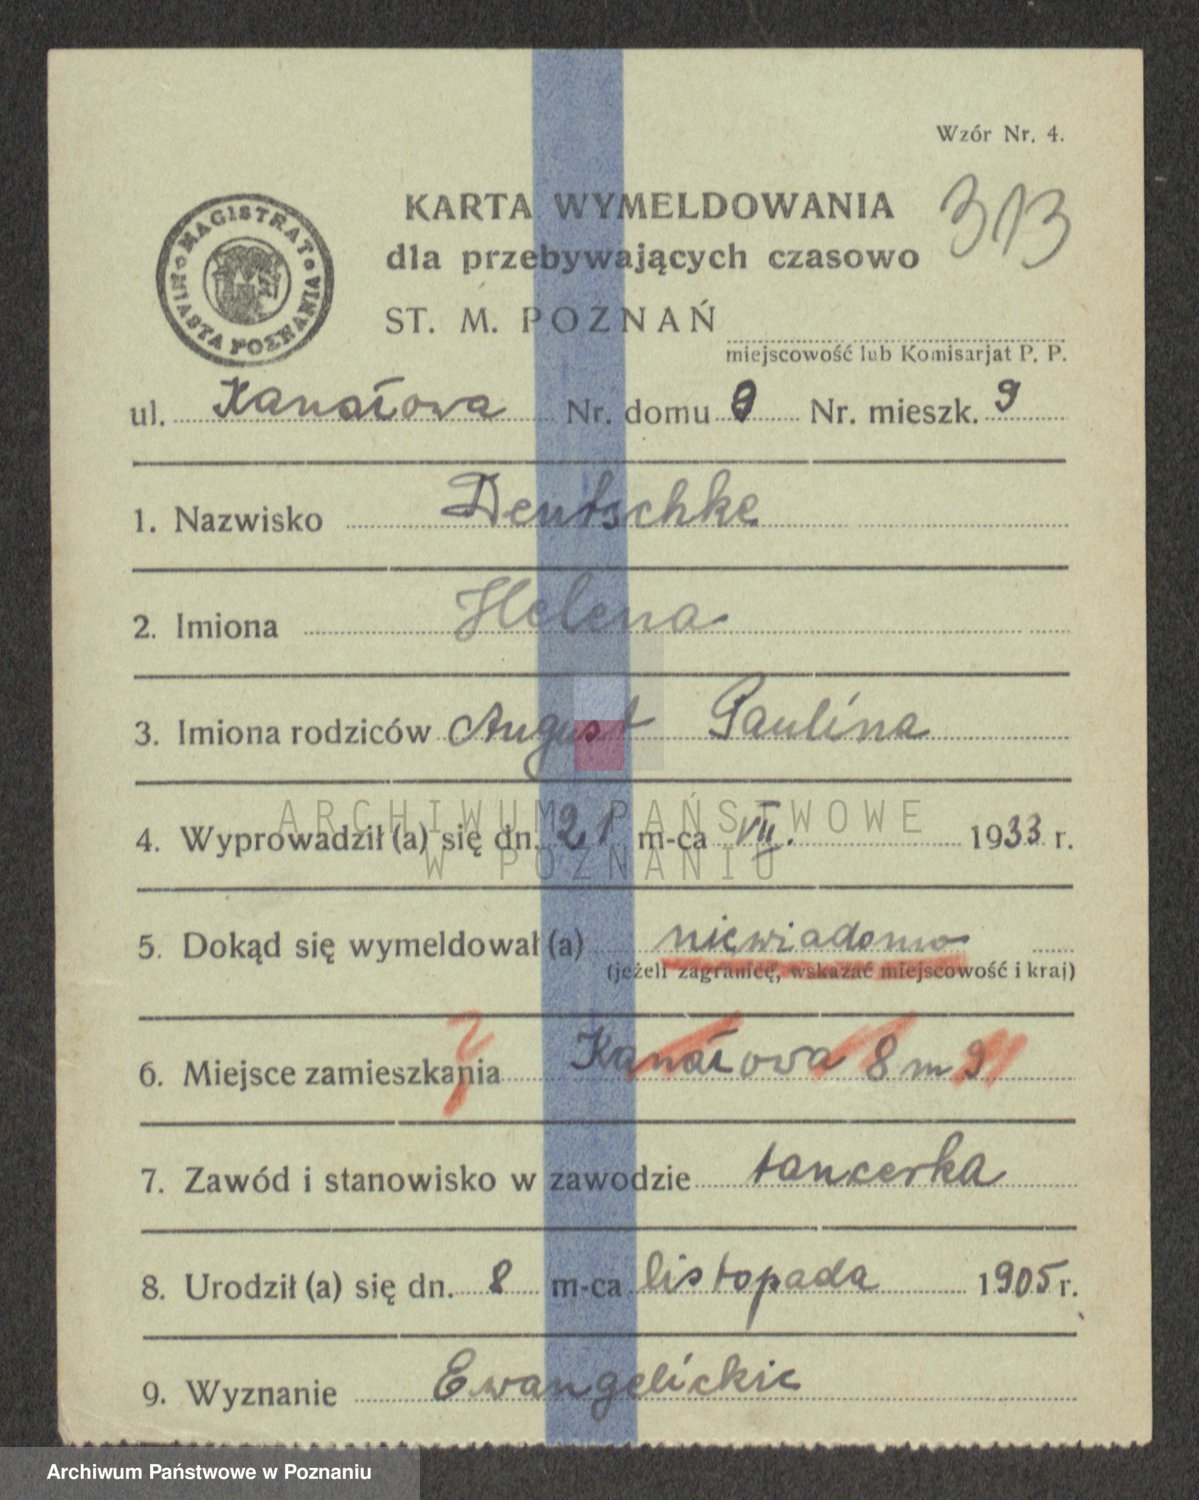 Wzór Nr. 4.
KARTA WYMELDOWANIA
313
dla przebywających czasowo
MAGISTRAT MIASTA POZNANIA
ST. M. POZNAŃ
miejscowość lub Komisarjat P. P.
ul. Kanałowa Nr. domu 8 Nr. mieszk. 9
1. Nazwisko Deutschke
2. Imiona Helena
3. Imiona rodziców August Paulina
4. Wyprowadził (a) się dn. 21 m-ca VII. 1933 r.
ARCHIWUM PAŃSTWOWE
W POZNANIU
5. Dokąd się wymeldował (a) niewiadomo
(jeżeli zagranicę, wskazać miejscowość i kraj)
6. Miejsce zamieszkania Kanałowa 8 m 9
7. Zawód i stanowisko w zawodzie tancerka
8. Urodził (a) się dn. 8 m-ca listopada 1905 r.
9. Wyznanie Ewangelickie
Archiwum Państwowe w Poznaniu